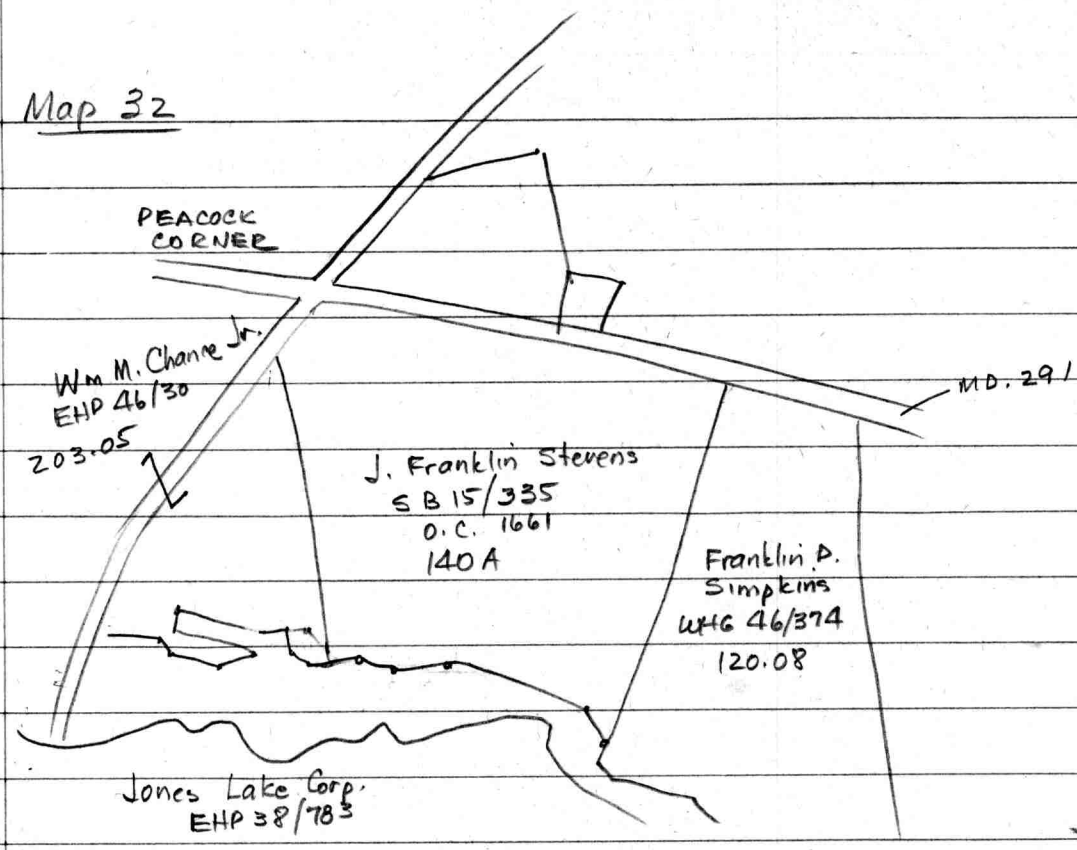 Map 32
PEACOCK
CORNER
Wm M. Chance Jr.
EHP 46/30
203.05
MD. 291
J. Franklin Stevens
SB 15/335
O.C. 1661
140 A
Franklin D.
Simpkins
WHG 46/374
120.08
Jones Lake Corp.
EHP 38/783